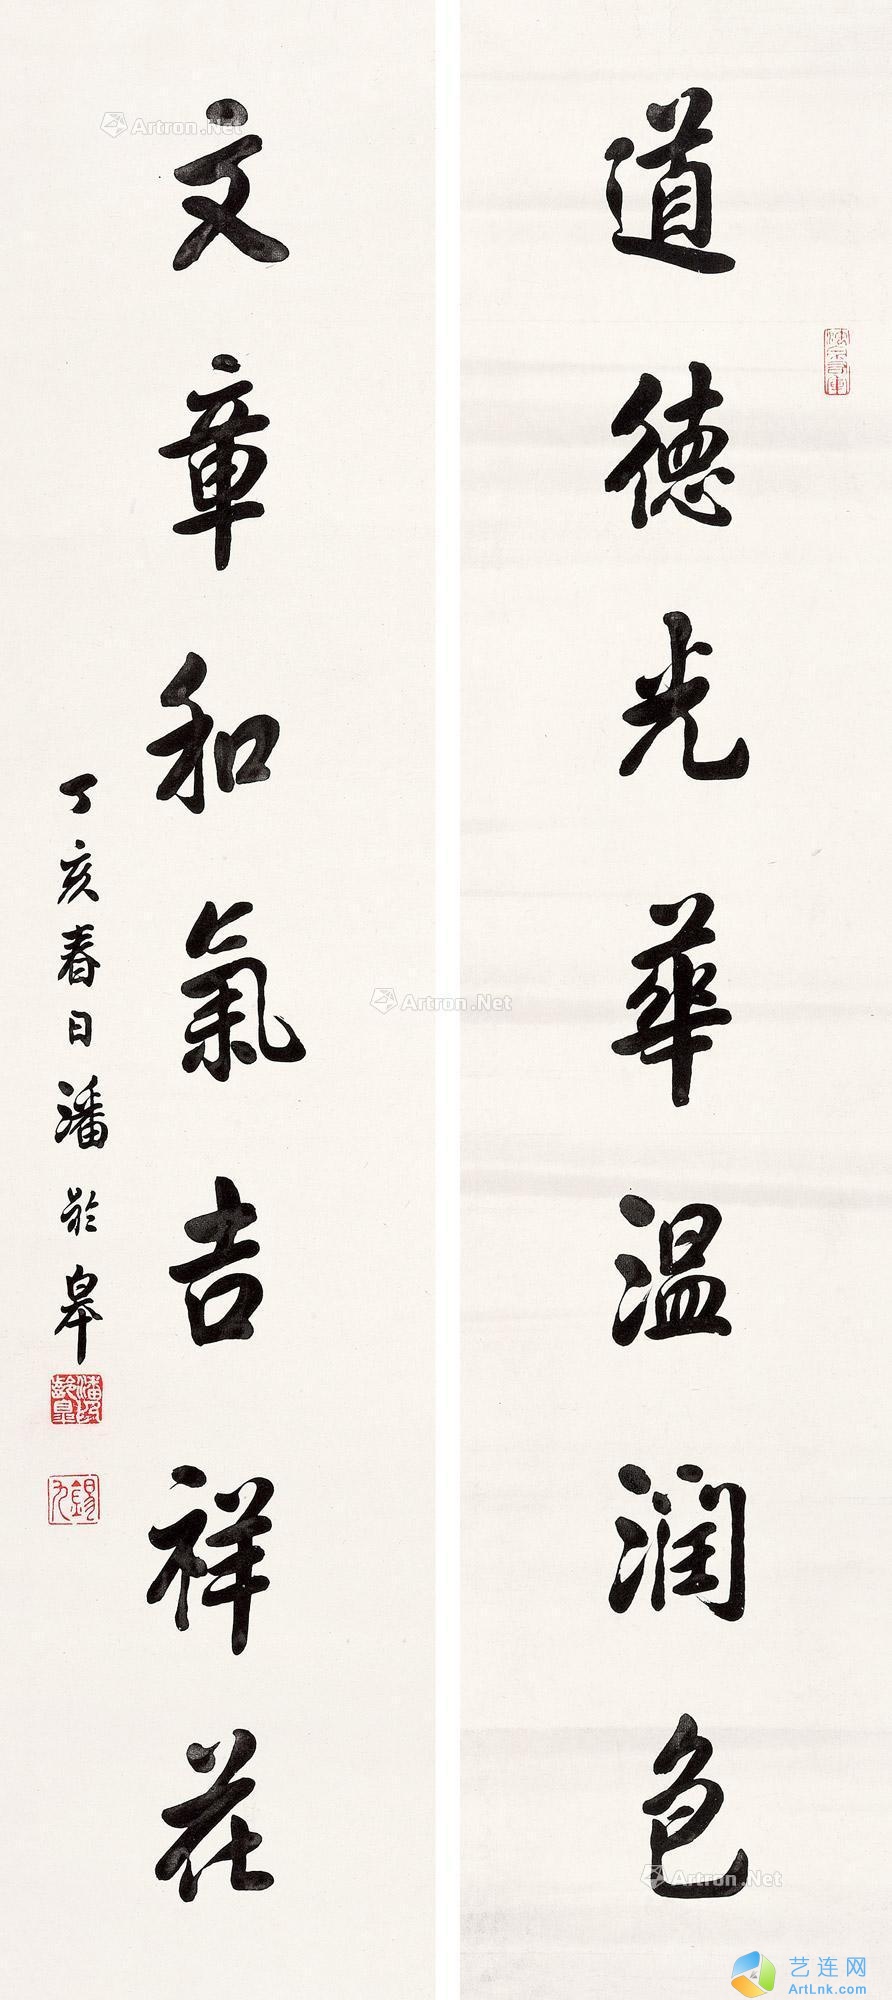 道德光華温润色
文章和氣吉祥花
丁亥春日潘齡皋
潘齡皋
錫九
Artron.Net
Artron.Net
Artron.Net
艺连网
ArtLnk.com